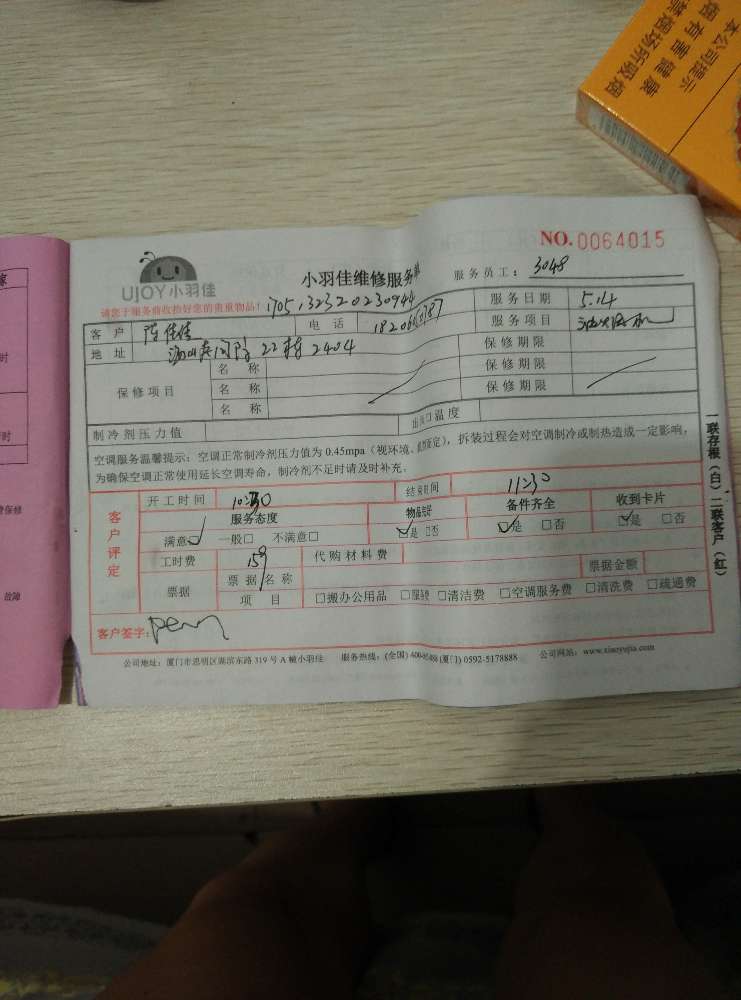 本公司提示
烟有害健康
禁烟场所吸烟
NO. 0064015
UJOY小羽佳
小羽佳维修服务单
服务员工：3048
请您于服务前收拾好您的贵重物品！
客户 陈佳佳 电话 服务日期 5.14
地址 22栋2404 服务项目 油烟机
保修项目 名称 保修期限
名称 保修期限
名称 保修期限
制冷剂压力值 出风口温度
空调服务温馨提示：空调正常制冷剂压力值为0.45mpa（视环境、 而定），拆装过程会对空调制冷或制热造成一定影响，
为确保空调正常使用延长空调寿命，制冷剂不足时请及时补充。
客户评定
开工时间 10:30 结束时间 11:30
服务态度 物品完好 备件齐全 收到卡片
满意 一般□ 不满意□ 是 □否 是 □否 是 □否
工时费 159 代购材料费
票据 票据名称 票据金额
项目 □搬办公用品 □服务费 □清洁费 □空调服务费 □清洗费 □疏通费
客户签字：
公司地址：厦门市思明区湖滨东路319号A幢小羽佳 服务热线：(全国) (厦门) 0592-5178888 公司网站：www.xiaoyujia.com
一联存根（白）二联客户（红）
时
时
保修
故障